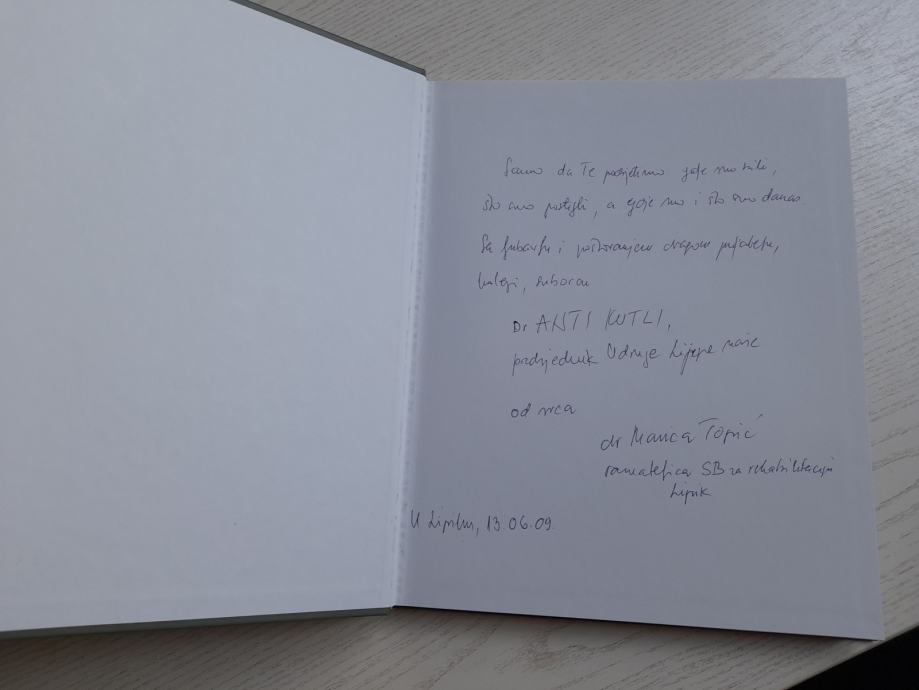 Samo da Te podsjetimo gdje smo bili,
što smo postigli, a gdje smo i što smo danas
Sa ljubavlju i poštovanjem dragom prijatelju,
kolegi, suborcu
Dr ANTI KUTLI,
predsjednik Udruge Lijepe naše
od srca
dr Marica Topić
ravnateljica SB za rehabilitaciju
Lipik
U Lipiku, 13.06.09